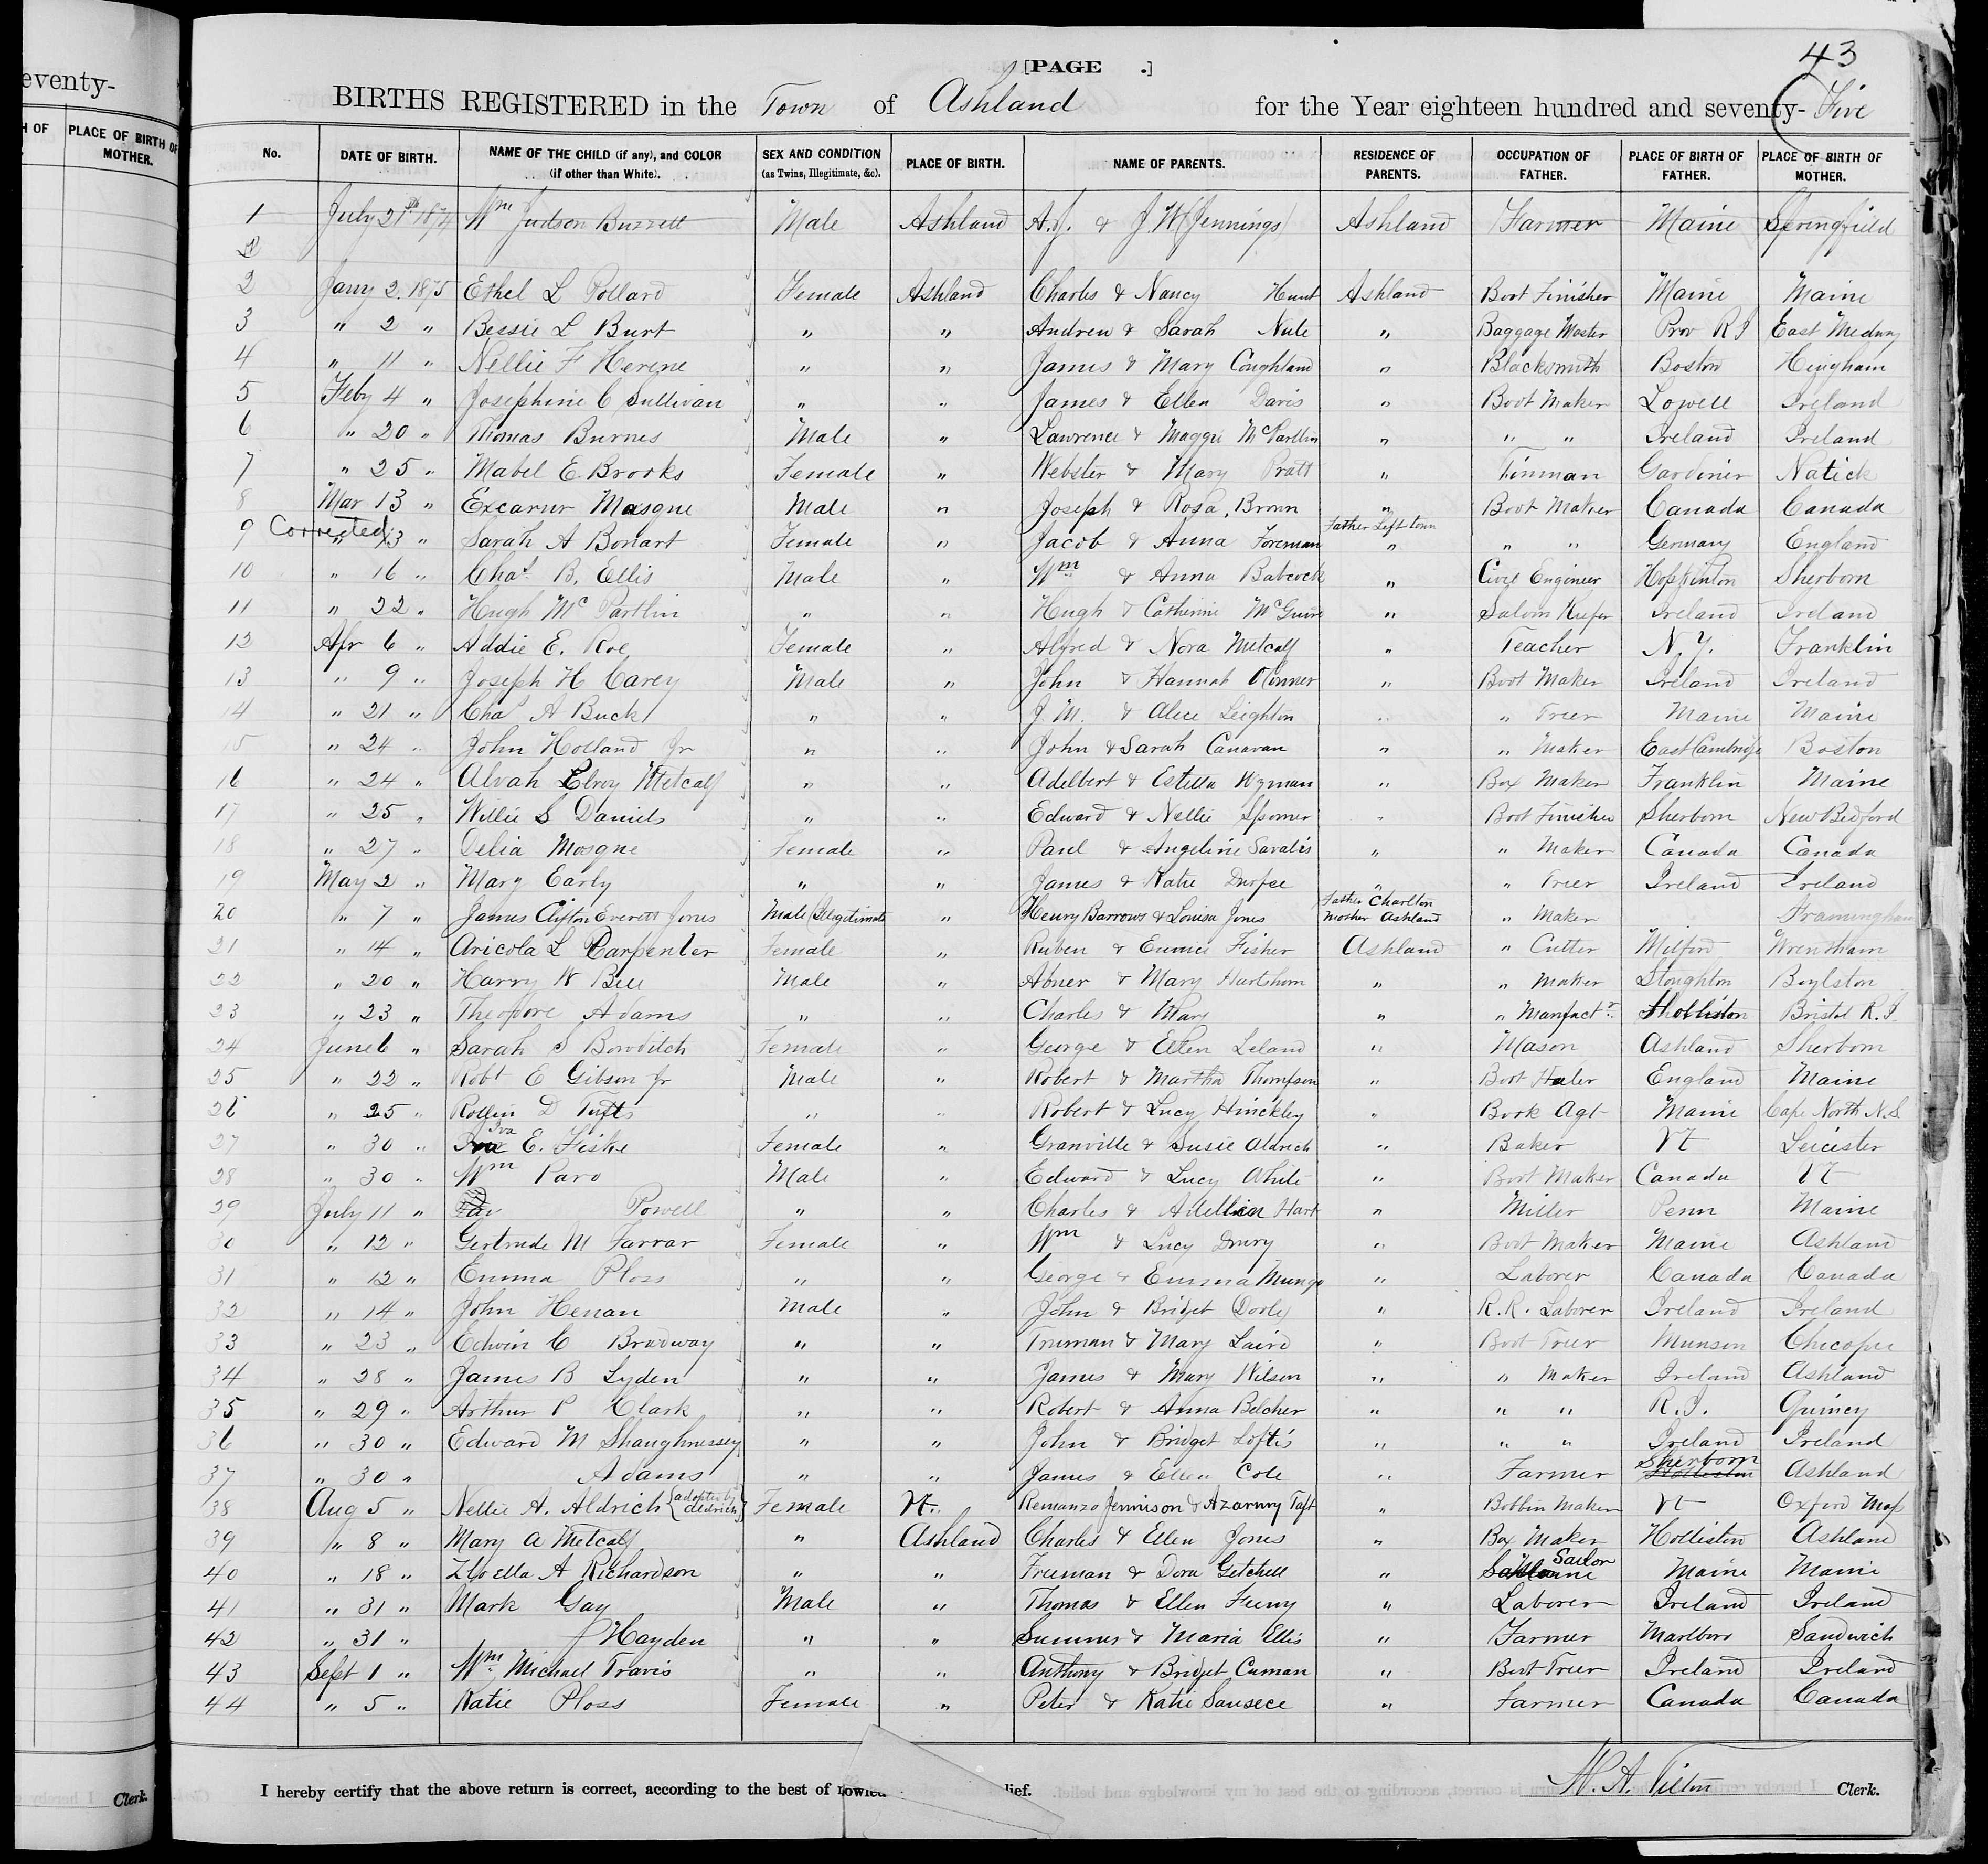 eventy-
H OF
PLACE OF BIRTH OF MOTHER.
Clerk.
43
[PAGE .]
BIRTHS REGISTERED in the Town of Ashland for the Year eighteen hundred and seventy- Five
No. DATE OF BIRTH. NAME OF THE CHILD (if any), and COLOR (if other than White). SEX AND CONDITION (as Twins, Illegitimate, &c). PLACE OF BIRTH. NAME OF PARENTS. RESIDENCE OF PARENTS. OCCUPATION OF FATHER. PLACE OF BIRTH OF FATHER. PLACE OF BIRTH OF MOTHER.
1 July 21st 1874 Wm Judson Buzzell Male Ashland A.J. & J.W (Jennings) Ashland Farmer Maine Springfield
2
2 Jany 2. 1875 Ethel L Pollard Female Ashland Charles & Nancy Hunt Ashland Boot Finisher Maine Maine
3 " 2 " Bessie L Burt " " Andrew & Sarah Nute " Baggage Master Prov R I East Medway
4 " 11 " Nellie F Herene " " James & Mary Coughland " Blacksmith Boston Hingham
5 Feby 4 " Josephine C Sullivan " " James & Ellen Davis " Boot Maker Lowell Ireland
6 " 20 " Thomas Burnes Male " Lawrence & Maggie McPartlin " " " Ireland Ireland
7 " 25 " Mabel E. Brooks Female " Webster & Mary Pratt " Tinman Gardiner Natick
8 Mar 13 " Excarur Masque Male " Joseph & Rosa Brown " Boot Maker Canada Canada
9 Corrected " 13 " Sarah A Bonart Female " Jacob & Anna Foreman Father Left town " " " Germany England
10 " 16 " Chas. B. Ellis Male " Wm & Anna Babcock " Civil Engineer Hopkinton Sherborn
11 " 22 " Hugh McPartlin " " Hugh & Catherine McGuire " Saloon Keeper Ireland Ireland
12 Apr 6 " Addie E. Roe Female " Alfred & Nora Metcalf " Teacher N.Y. Franklin
13 " 9 " Joseph H Carey Male " John & Hannah OConner " Boot Maker Ireland Ireland
14 " 21 " Chas A Buck " " J. M. & Alice Leighton " " Treer Maine Maine
15 " 24 " John Holland Jr " " John & Sarah Canavan " " Maker East Cambridge Boston
16 " 24 " Alvah Elroy Metcalf " " Adelbert & Estella Wyman " Box Maker Franklin Maine
17 " 25 " Willie S Daniels " " Edward & Nellie Spooner " Boot Finisher Sherborn New Bedford
18 " 27 " Delia Mosque Female " Paul & Angeline Savalis " " Maker Canada Canada
19 May 2 " Mary Early " " James & Katie Durfee " " Treer Ireland Ireland
20 " 7 " James Clifton Everett Jones Male (Illegitimate " Henry Barrows & Louisa Jones Father Charlton Mother Ashland " Maker Framingham
21 " 14 " Aricola L Carpenter Female " Ruben & Eunice Fisher Ashland " Cutter Milford Wrentham
22 " 20 " Harry W Bell Male " Abner & Mary Hartshorn " " Maker Stoughton Boylston
23 " 23 " Theodore Adams " " Charles & Mary " " Manfactr. Holliston Bristol R.I.
24 June 6 " Sarah S Bowditch Female " George & Ellen Leland " Mason Ashland Sherborn
25 " 22 " Robt E Gibson Jr Male " Robert & Martha Thompson " Boot Heeler England Maine
26 " 25 " Rollin D Tufts " " Robert & Lucy Hinckley " Book Agt Maine Cape North N.S.
27 " 30 " Iva E. Fiske Female " Granville & Susie Aldrich " Baker Vt Leicester
28 " 30 " Wm Paro Male " Edward & Lucy White " Boot Maker Canada Vt
29 July 11 " Powell " " Charles & Adellica Hart " Miller Penn Maine
30 " 12 " Gertrude M Farrar Female " Wm & Lucy Drury " Boot Maker Maine Ashland
31 " 12 " Emma Ploss " " George & Emma Mungo " Laborer Canada Canada
32 " 14 " John Henan Male " John & Bridget Dorley " R.R. Laborer Ireland Ireland
33 " 23 " Edwin C Bradway " " Truman & Mary Laird " Boot Treer Munson Chicopee
34 " 28 " James B Lyden " " James & Mary Wilson " " Maker Ireland Ashland
35 " 29 " Arthur P Clark " " Robert & Anna Belcher " " " R.I. Quincy
36 " 30 " Edward M Shaughnessey " " John & Bridget Loftis " " " Ireland Ireland
37 " 30 " Adams " " James & Ellen Cole " Farmer Sherborn Holliston Ashland
38 Aug 5 " Nellie A. Aldrich {adopted by Aldrich} Female Vt. Remanzo Jennison & Azarmy Taft " Bobbin Maker Vt Oxford Mass
39 " 8 " Mary A Metcalf " Ashland Charles & Ellen Jones " Box Maker Holliston Ashland
40 " 18 " Lluella A Richardson " " Freeman & Dora Getchell " Sailor Maine Maine
41 " 31 " Mark Gay Male " Thomas & Ellen Feeny " Laborer Ireland Ireland
42 " 31 " Hayden " " Sumner & Maria Ellis " Farmer Marlboro Sandwich
43 Sept 1 " Wm. Michael Travis " " Anthony & Bridget Cuman " Boot Treer Ireland Ireland
44 " 5 " Katie Ploss Female " Peter & Katie Sausece " Farmer Canada Canada
I hereby certify that the above return is correct, according to the best of nowled lief. W. A. Tilton Clerk.